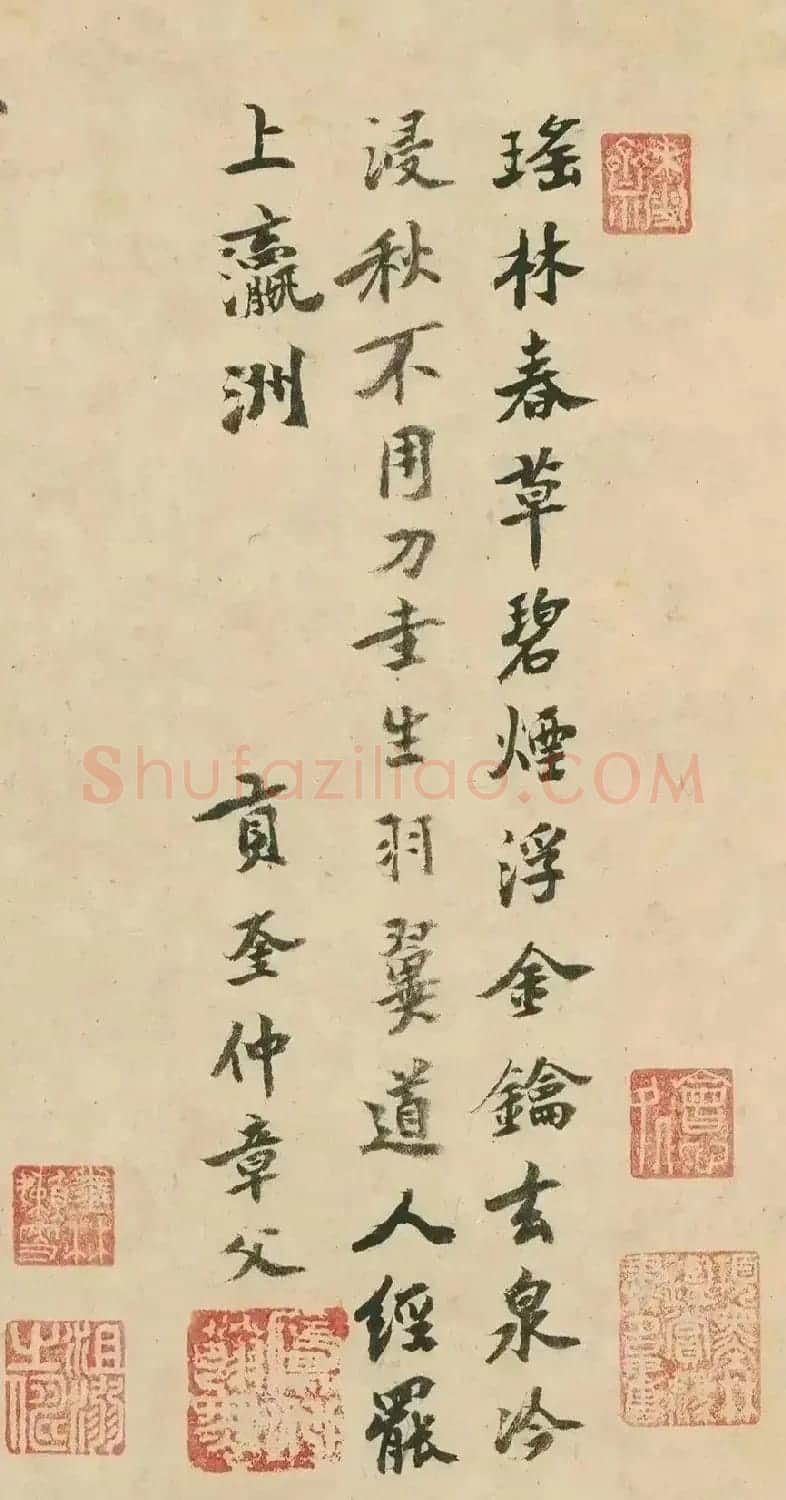 瑤林春草碧煙浮金鑰玄泉冷
浸秋不用刀圭生羽翼道人經罷
上瀛洲
貢奎仲章父
Shufaziliao.COM